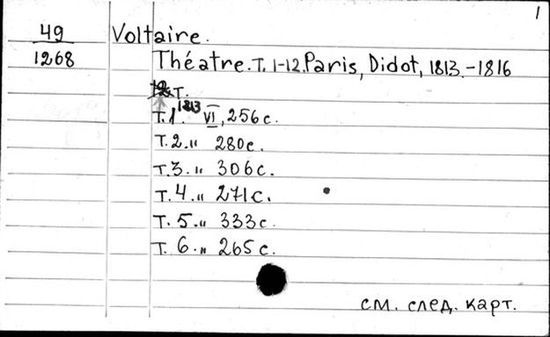 1
49 Voltaire.
1268 Théatre. Т. 1-12. Paris, Didot, 1813.-1816
12 т.
Т. 1. 1813 VI, 256 с.
Т. 2. " 280 с.
Т. 3. " 306 с.
Т. 4. " 271 с.
Т. 5. " 333 с.
Т. 6. " 265 с.
см. след. карт.